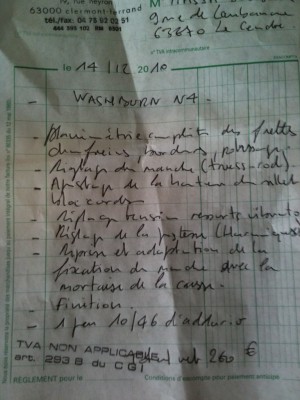 IV, rue Neyron
63000 clermont-ferrand
tél./fax: 04 73 92 03 51
9 rue de
63270 Le Cendre
n° TVA intracommunautaire
le 14/12 2010
- WASHBURN N4.
- Planimétrie complète des frettes
- Réglage du manche (truss-rod)
- Ajustage de la hauteur du sillet
bloc cordes
- Réglage tension ressorts vibrato
- Réglage de la justesse
- Reprise et adaptation de la
fixation du manche avec la
mortaise de la caisse.
- Finition
- 1 jeu 10/46 d'addario
TVA NON APPLICABLE
art. 293 B du CGI
net 260 €
RÈGLEMENT pour le
Conditions d'escompte pour paiement anticipé